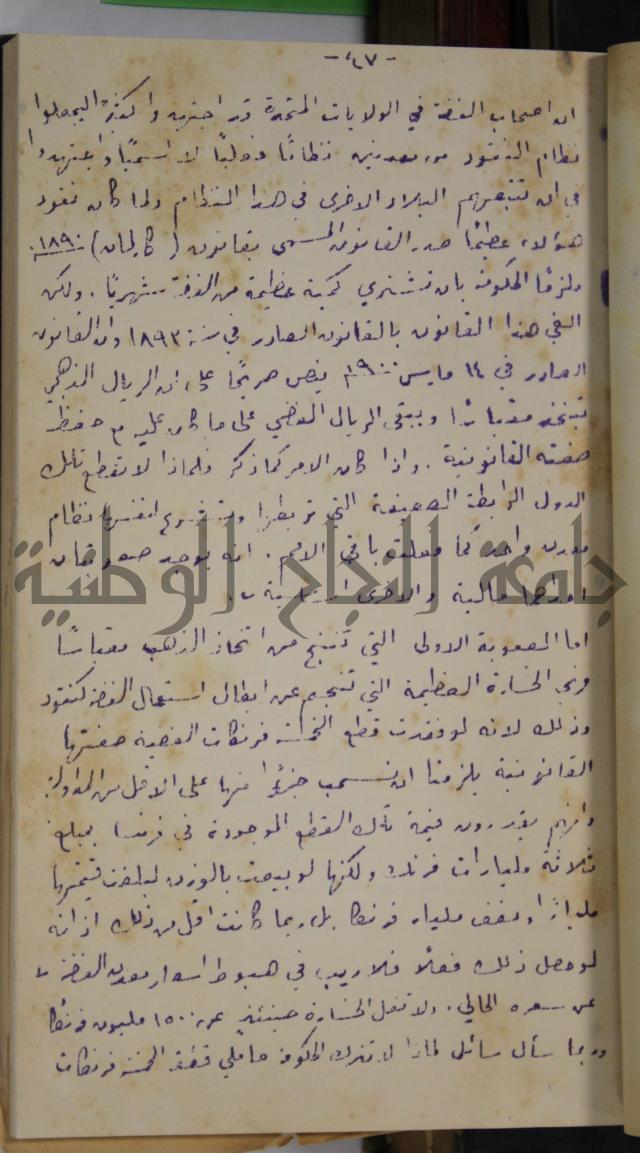 - ٤٧ -
ان اصحاب الفضة في الولايات المتحدة قد اجتهدوا كثيرًا ليجعلوا
نظام النقود من معدنين نظامًا فعليًا لا اسميًا واجتهدوا
في ان تتبعهم البلاد الاخرى في هذا النظام ولما كان نفوذ
هؤلاء عظيمًا صدر القانون المسمى بقانون ( ) ١٨٩٠
ملزمًا الحكومة بان تشتري كمية عظيمة من الفضة شهريًا . ولكن
الغي هذا القانون بالقانون الصادر في سنة ١٨٩٣ وان القانون
الصادر في ١٤ مايس ١٩٠٠ ينص صريحًا على ان الريال الذهبي
يتخذ مقياسًا ويبقى الريال الفضي على ما كان عليه مع حفظ
صفته القانونية . واذا كان الامر كما ذكر فلماذا لا تقطع تلك
الدول الرابطة الضعيفة التي تربطها وتشرع لنفسها نظام
معدن واحد كما فعلت باقي الامم . انه يوجد صعوبتان
احداهما مالية والاخرى
جامعة النجاح الوطنية
اما الصعوبة الاولى التي تنتج من اتخاذ الذهب مقياسًا
فهي الخسارة العظيمة التي تنجم عن ابطال استعمال الفضة كنقود
وذلك لانه لو فقدت قطع الخمسة فرنكات الفضية صفتها
القانونية يلزمنا ان نسحب جزءًا منها على الاقل من التداول
وانهم يقدرون قيمة تلك القطع الموجودة في فرنسا بمبلغ
ثلاثة مليارات فرنك ولكنها لو بيعت بالوزن لبلغت قيمتها
مليارًا ونصف مليار فرنكا بل ربما كانت اقل من ذلك اذ انه
لو حصل ذلك فعلًا فلا ريب في هبوط اسعار معدن الفضة
عن سعره الحالي . ولا تقل الخسارة حينئذٍ عن ١٥٠٠ مليون فرنكا
وربما سأل سائل لماذا لا تترك الحكومة حاملي قطع الخمسة فرنكات